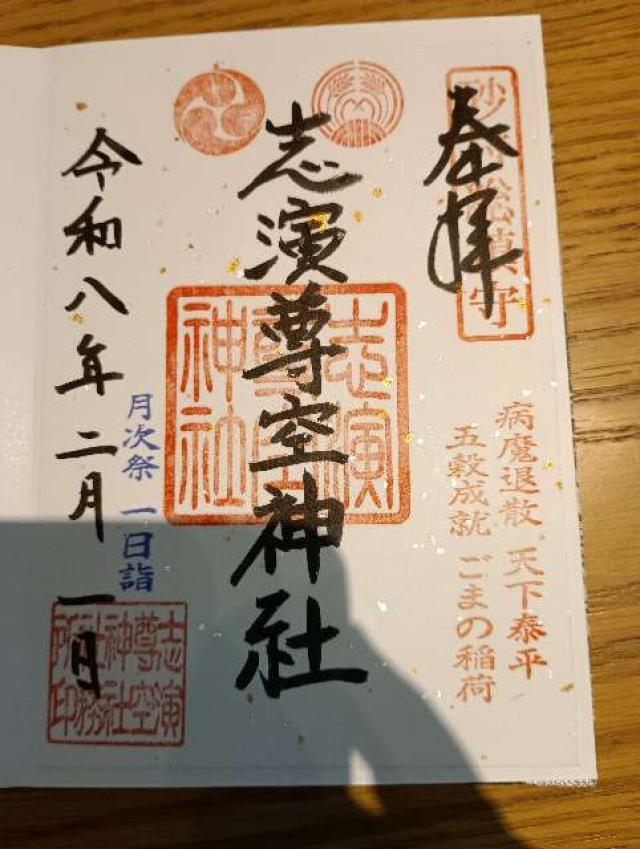 奉拝
砂村総鎮守
病魔退散 天下泰平
五穀成就 ごまの稲荷
志演尊空神社
志演尊空神社
月次祭 一日詣
令和八年二月一日
志演尊空神社社務所印